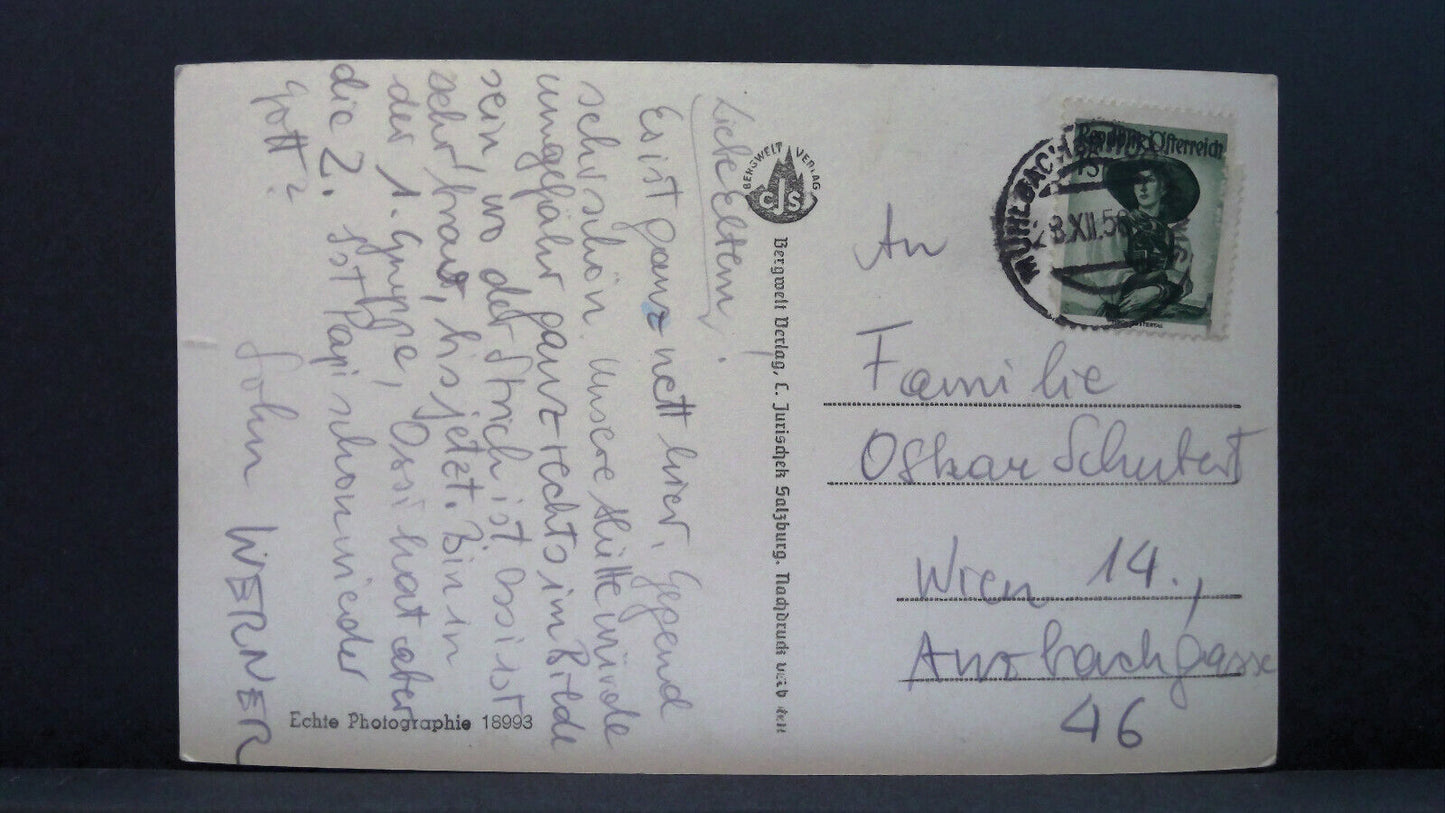 Liebe Eltern!
Es ist ganz nett hier, Gegend
sehr schön. Unsere Hütte würde
ungefähr ganz rechts im Bilde
sein, wo der Strich ist. Ossi ist
sehr brav, bis jetzt. Bin in
der 1. Gruppe, Ossi hat aber
die 2. Ist Papi schon wieder
Sohn WERNER
Echte Photographie 18993
BERGWELT VERLAG
CJS
Bergwelt Verlag, C. Jurischek Salzburg. Nachdruck verboten
Republik Österreich
MÜHLBACH
28.XII.56
An
Familie
Oskar Schubert
Wien 14.,
46